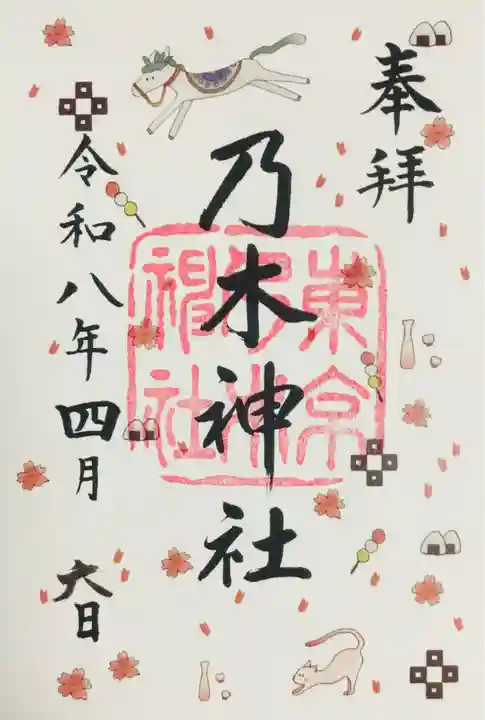 奉拝
乃木神社
東京
乃木
神社
令和八年四月六日